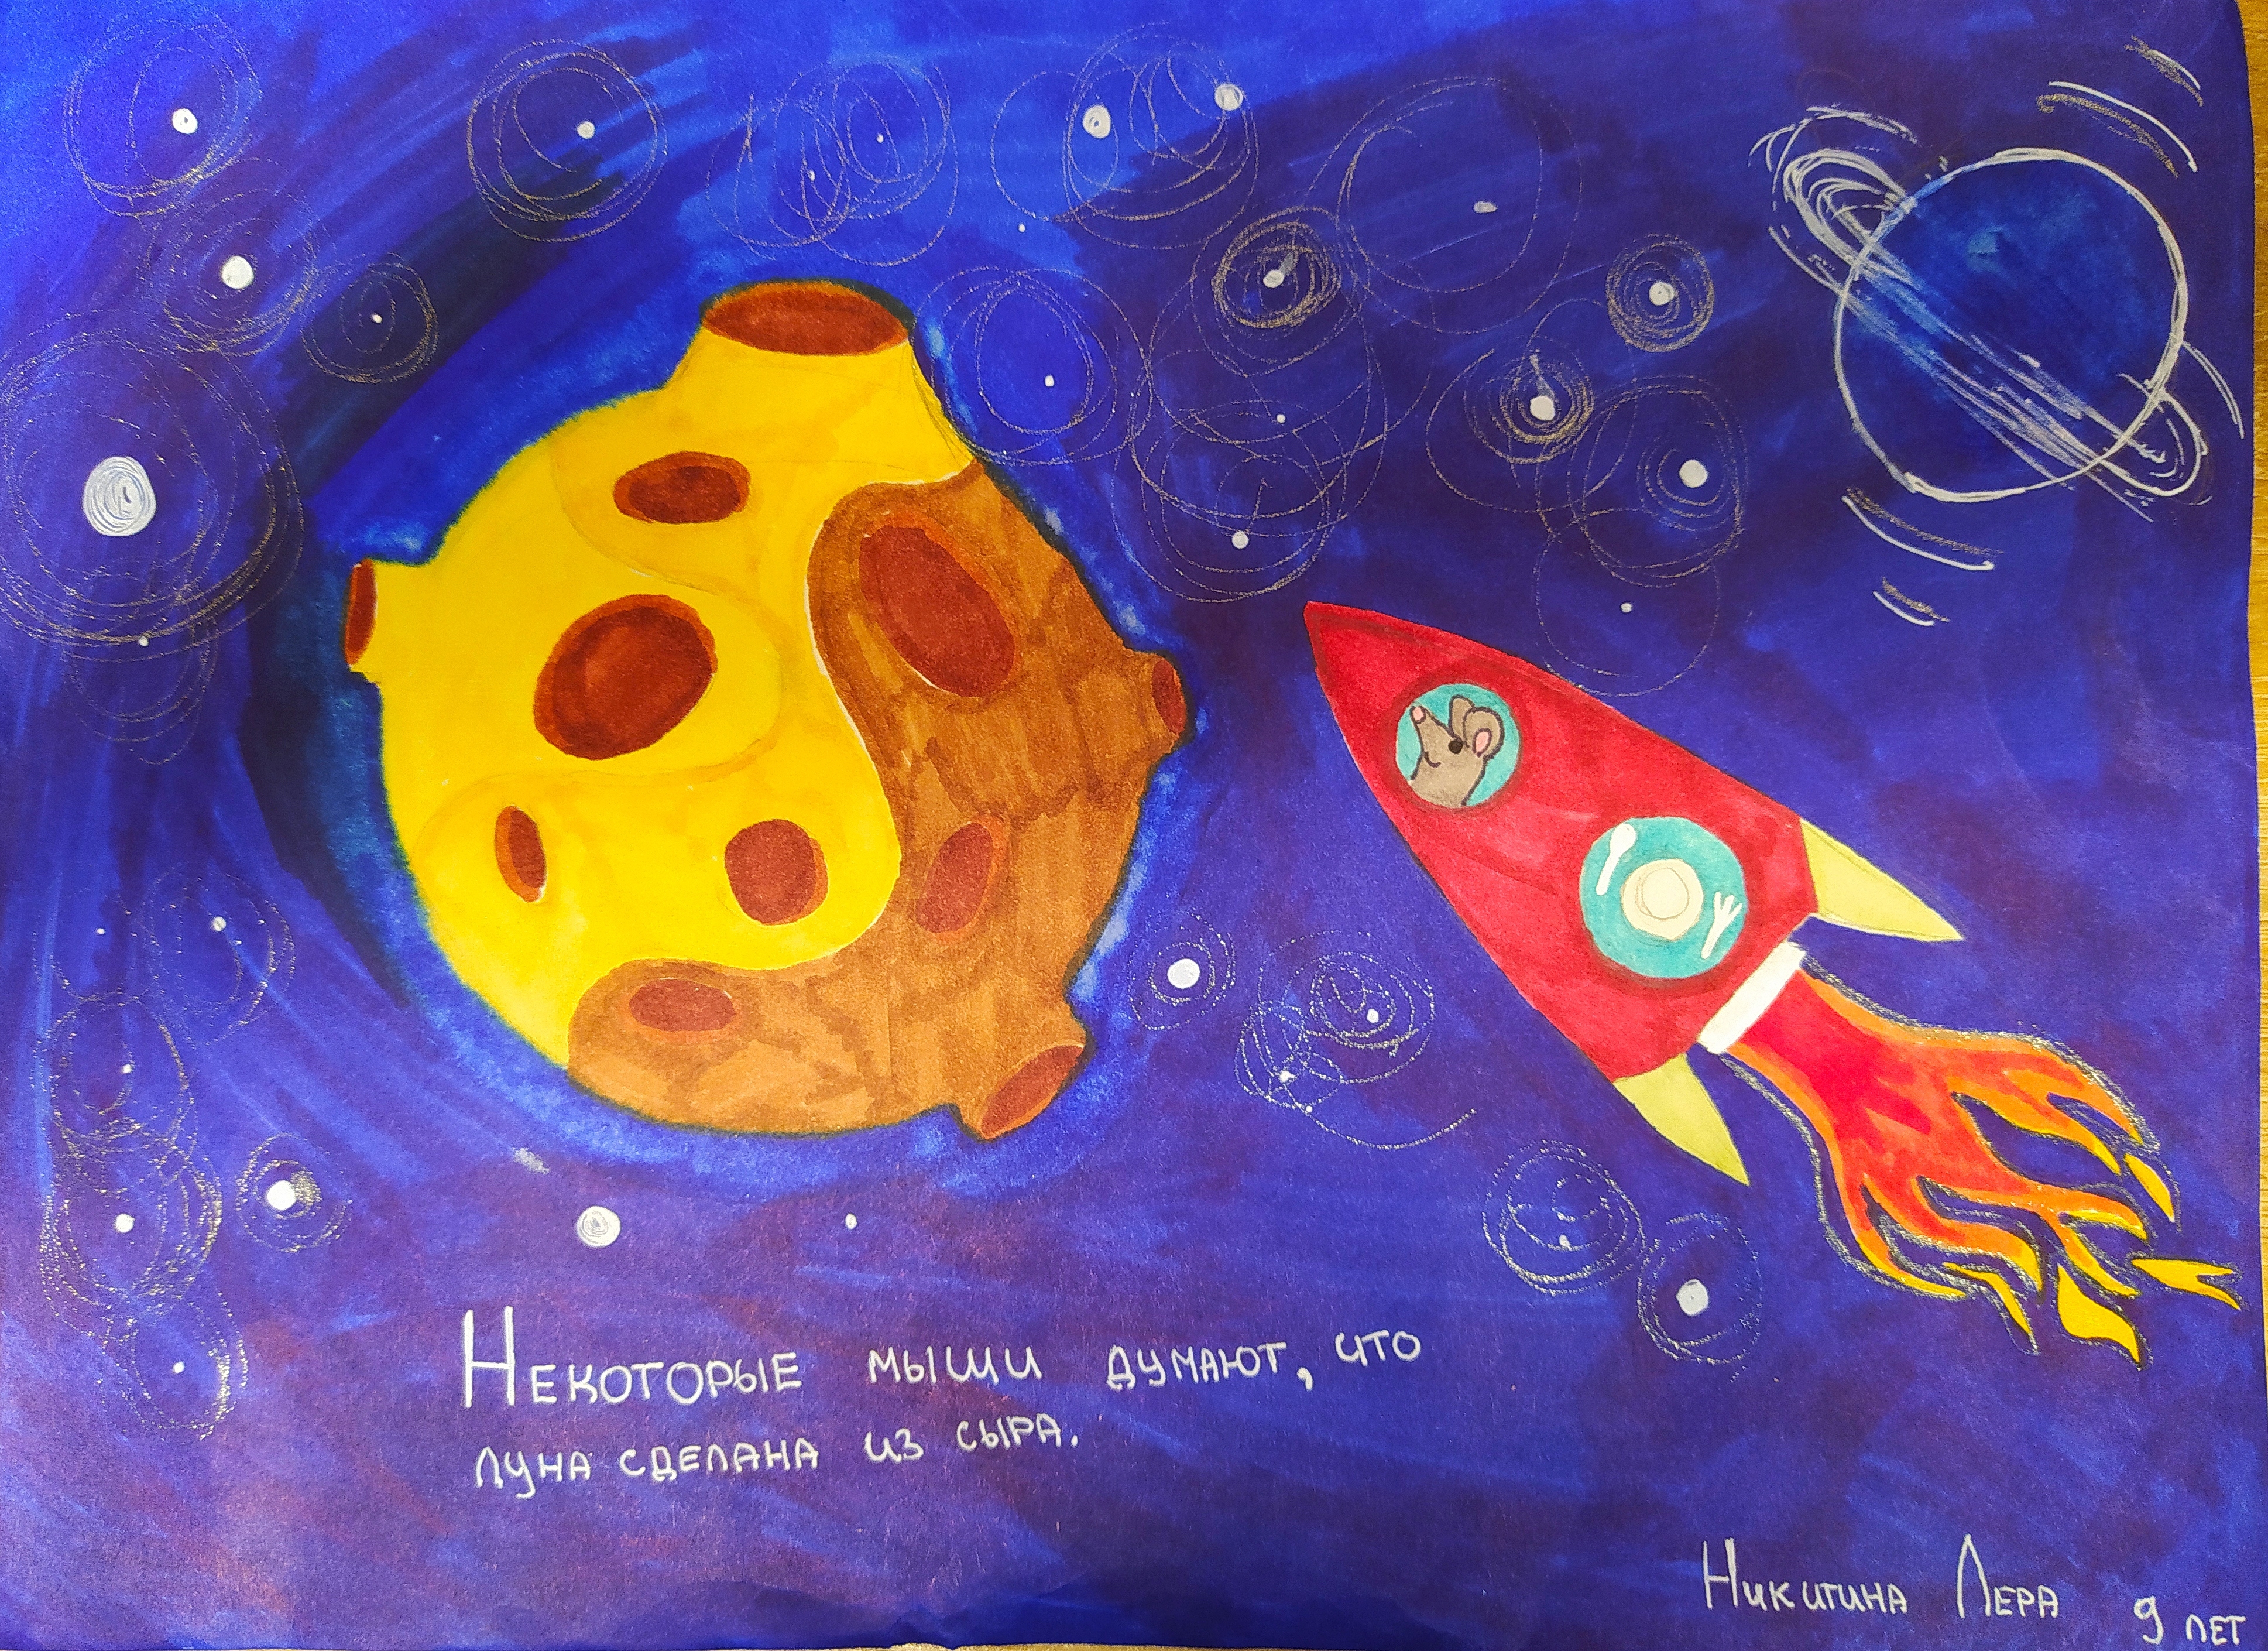 Некоторые мыши думают, что
луна сделана из сыра.
Никитина Лера 9 лет